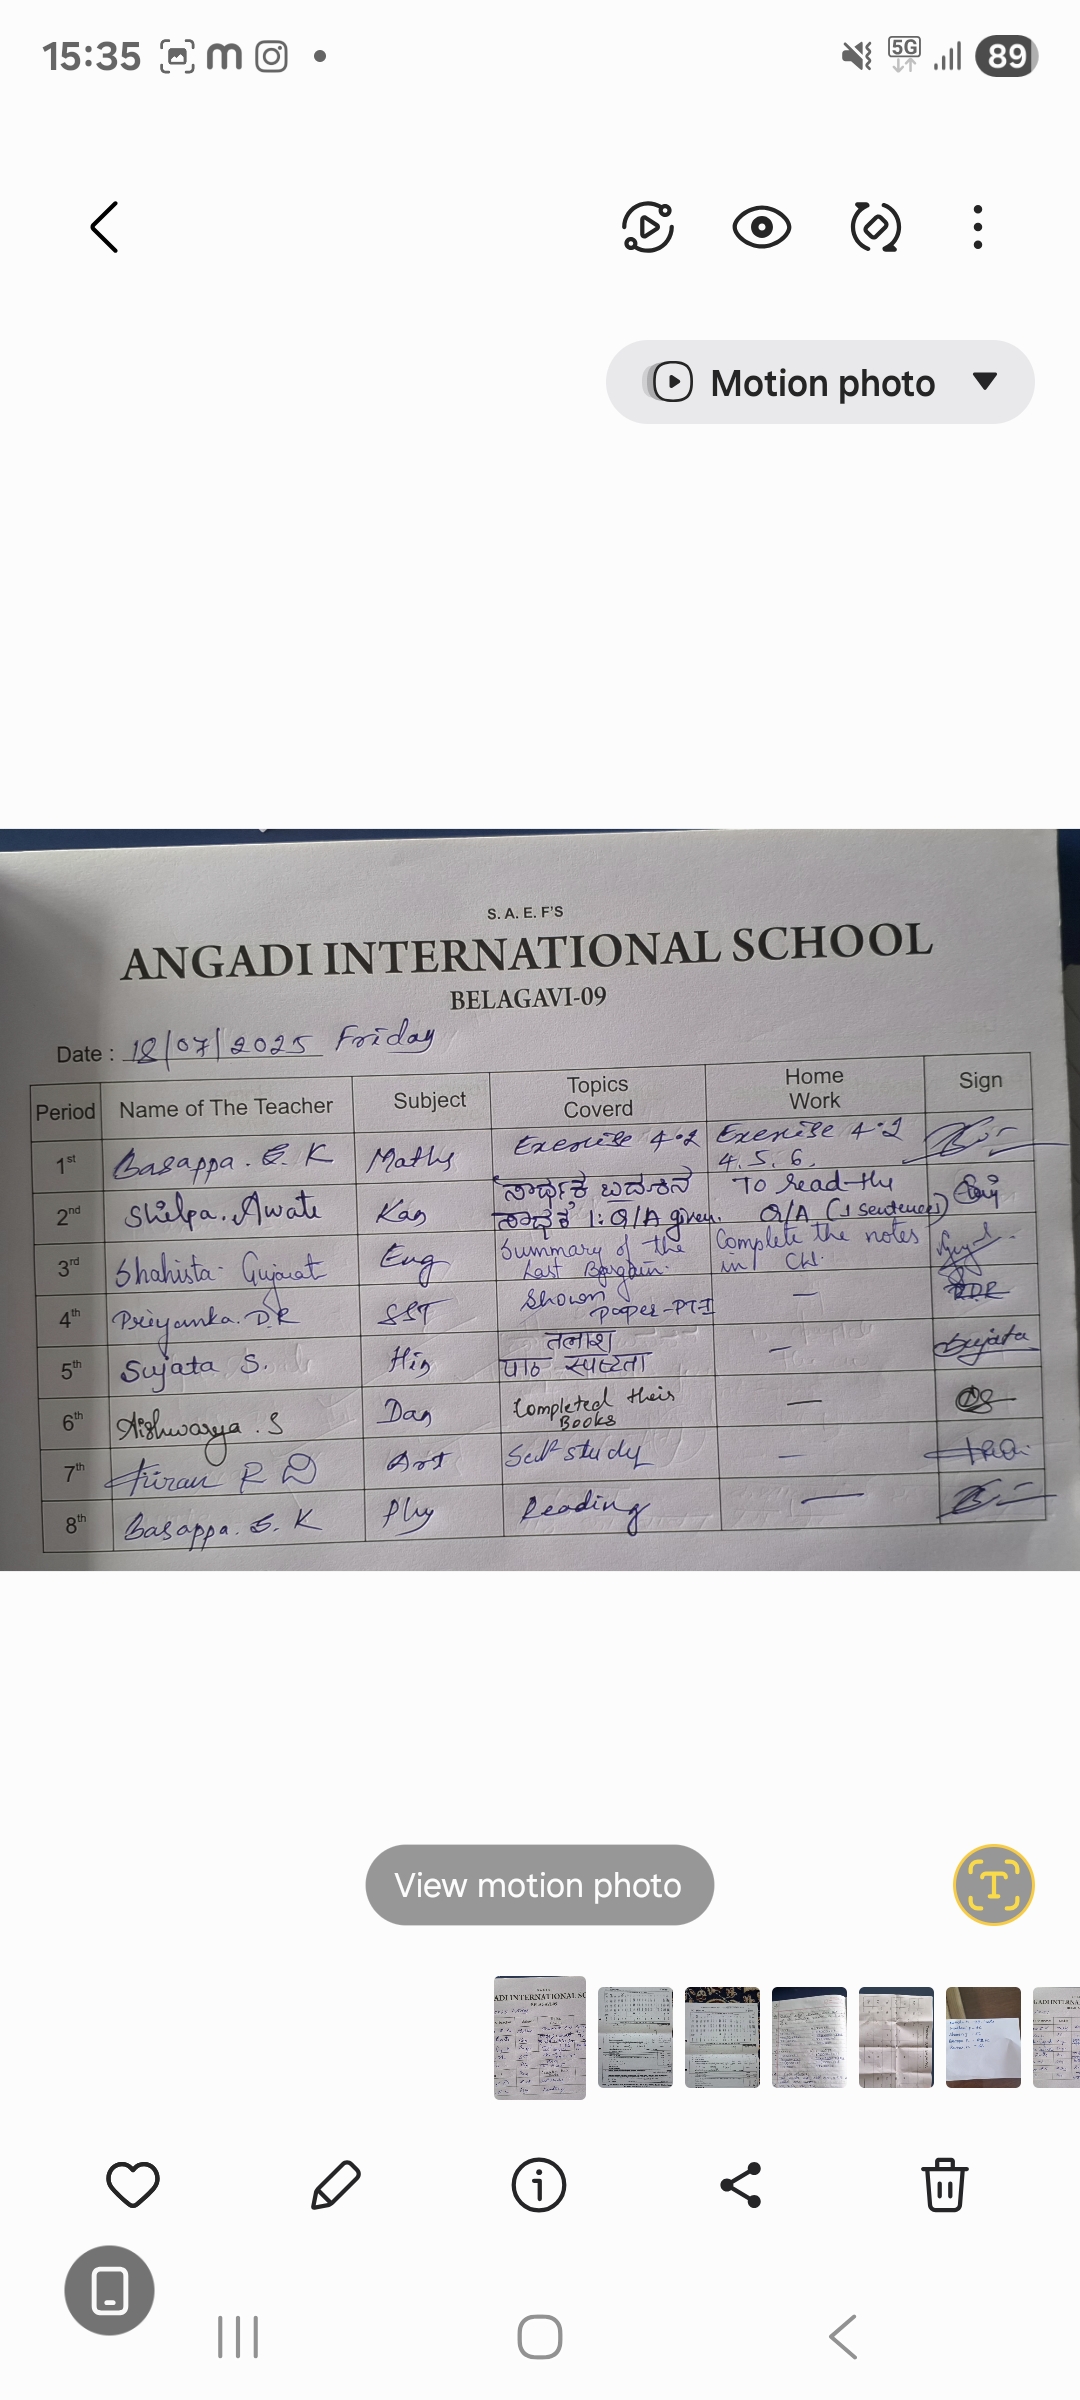 15:35
5G
89
Motion photo
S. A. E. F'S
ANGADI INTERNATIONAL SCHOOL
BELAGAVI-09
Date : 18/07/2025 Friday
Period Name of The Teacher Subject Topics Coverd Home Work Sign
1st Basappa. K Maths Exercise 4.2 Exercise 4.2
4. 5. 6.
2nd Shilpa. Awate Kan 1: Q/A given. To read the
Q/A (1 sentences)
3rd Shahista Gujarat Eng Summary of the Complete the notes
Last Bargain. in CW.
4th Priyanka. D.R SST Shown —
paper-PT1
5th Sujata S. Hin तलाश — Sujata
पाठ स्पष्टता
6th Aishwarya . S Dan Completed their —
Books
7th Kiran R D Art Self study —
8th Basappa. K Phy Reading —
View motion photo
T